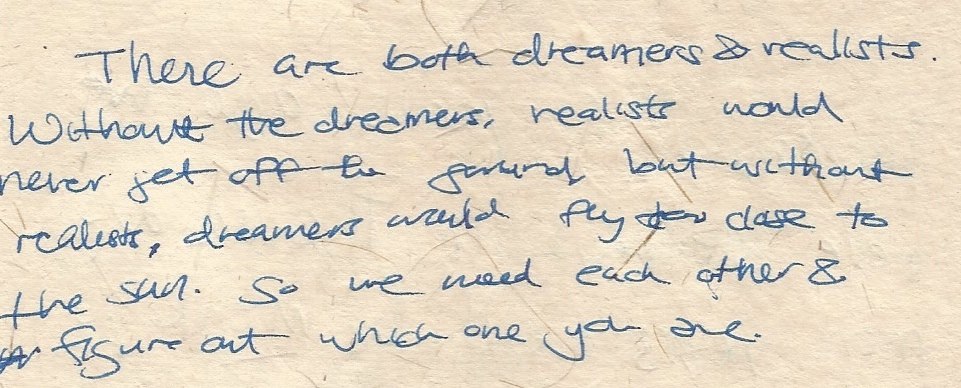 There are both dreamers & realists.
Without the dreamers, realists would
never get off the ground, but without
realists, dreamers would fly too close to
the sun. So we need each other &
figure out which one you are.